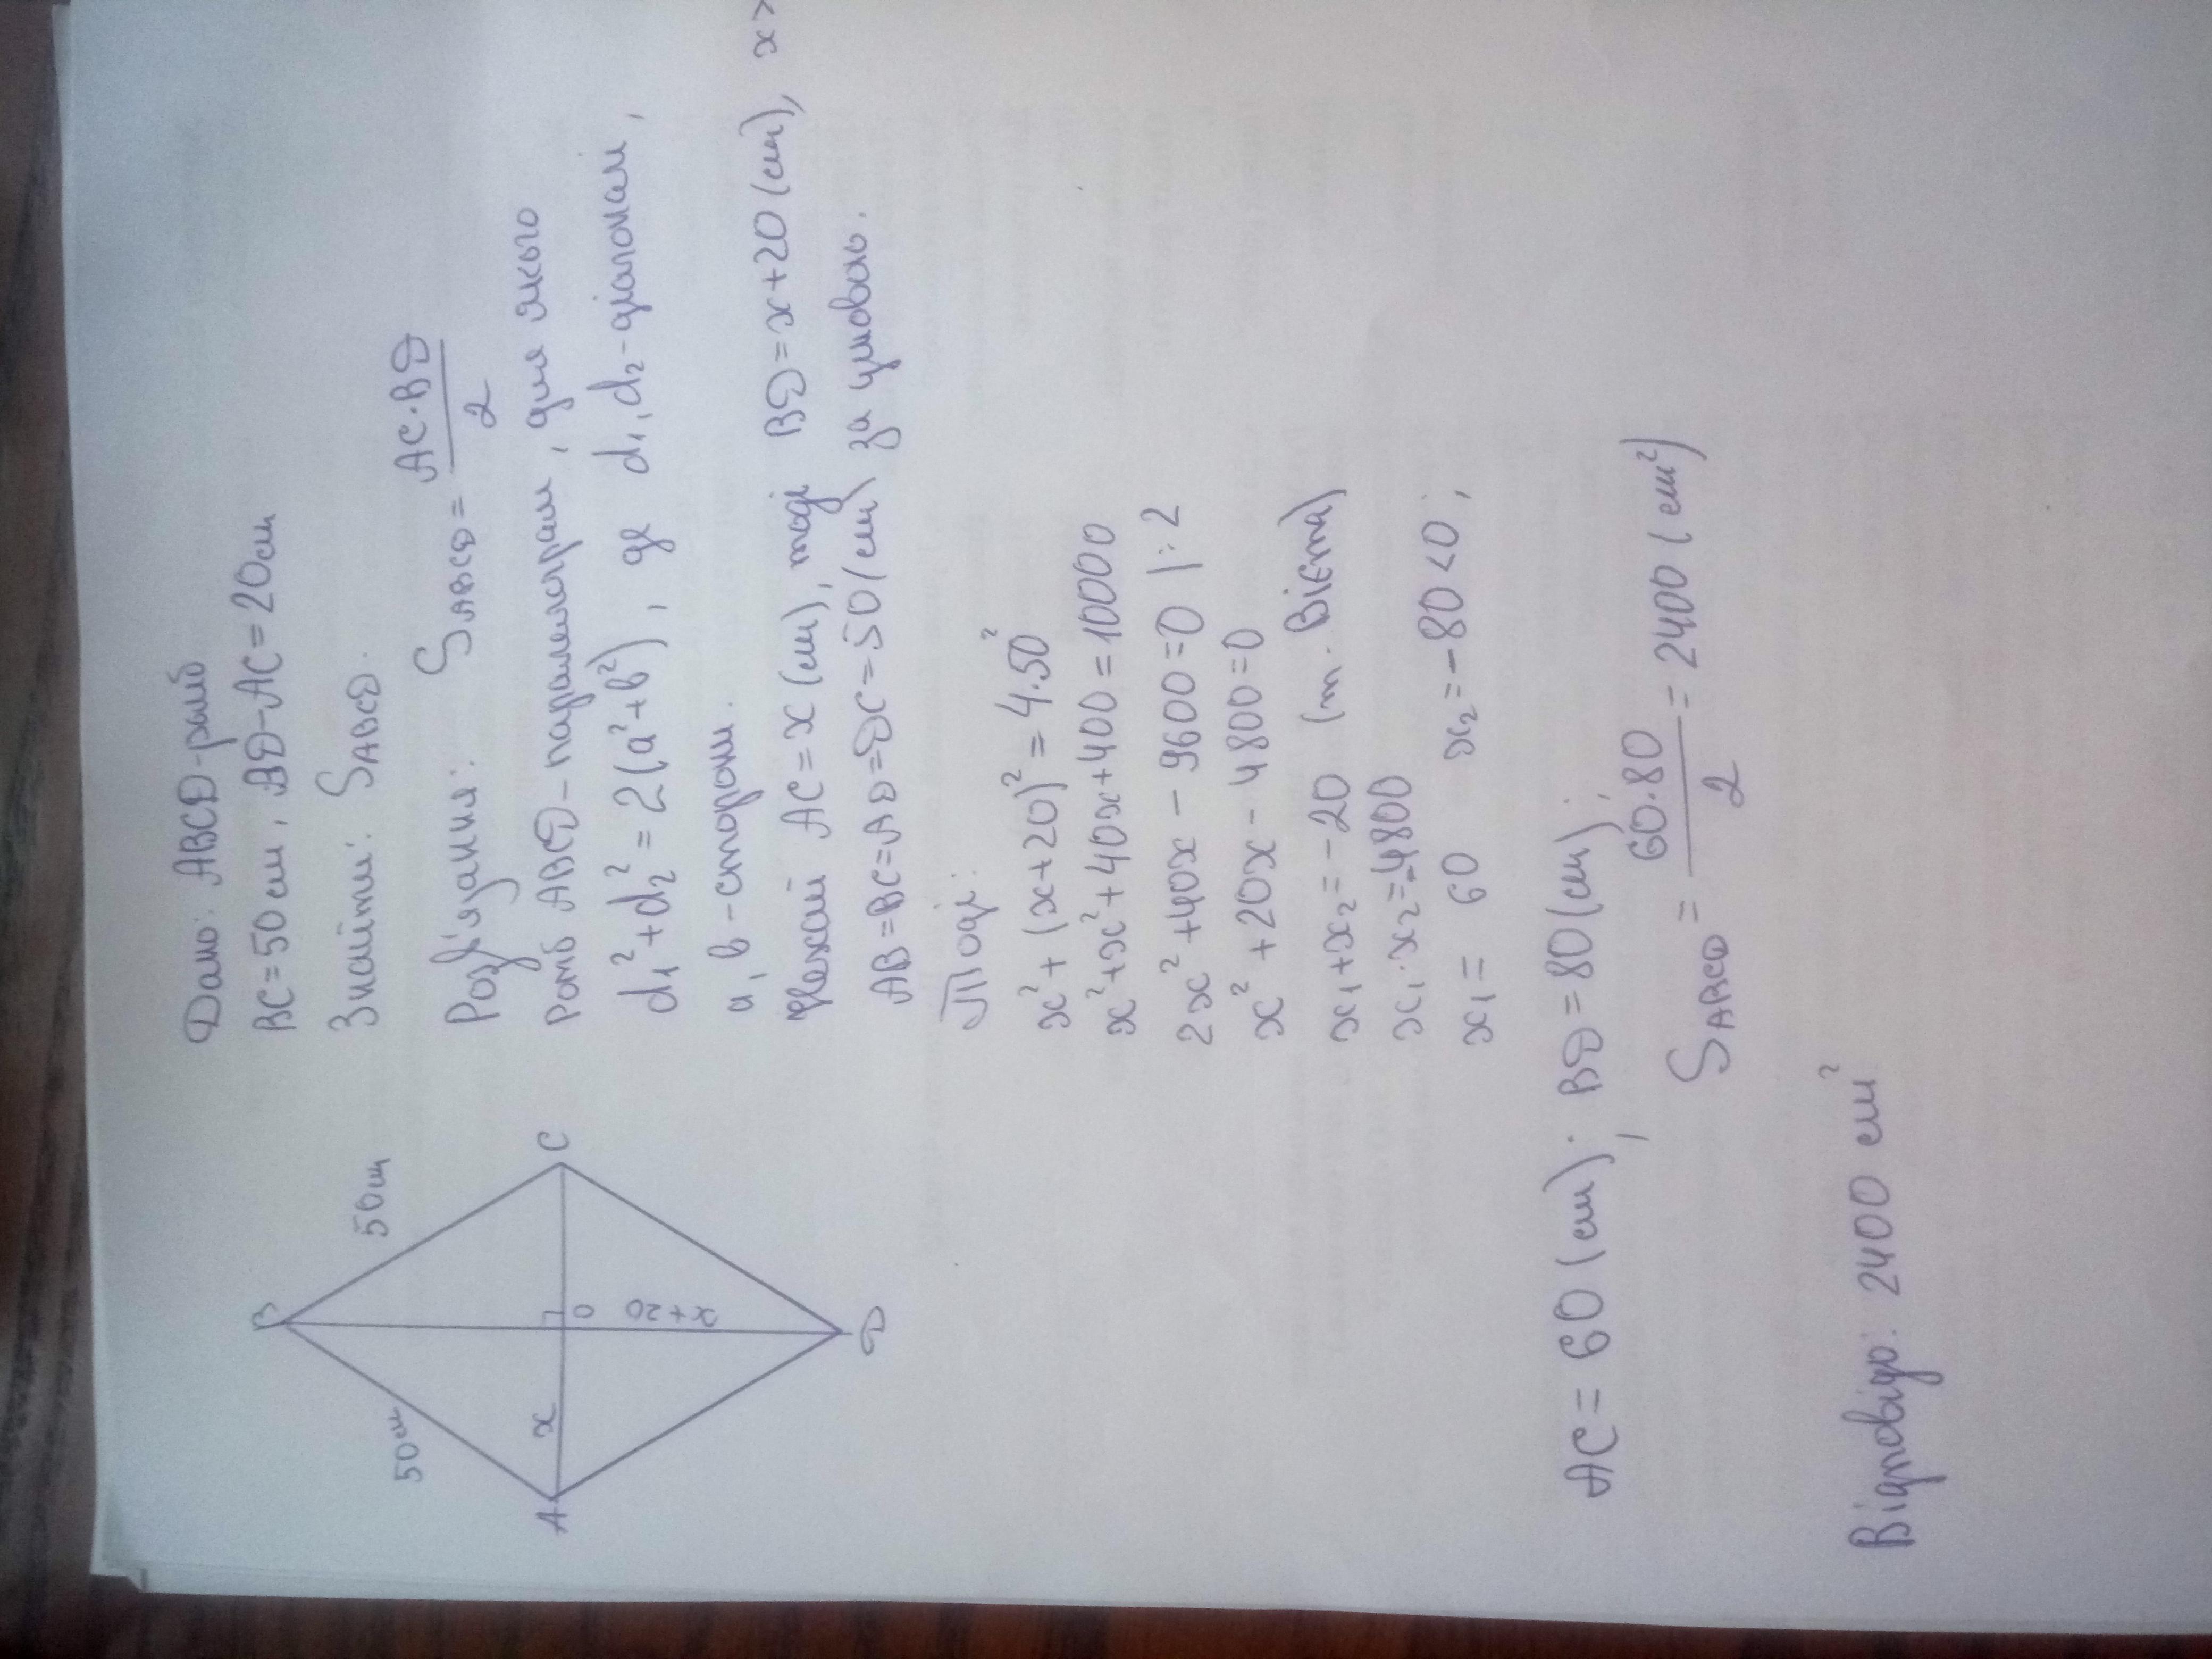 Дано: ABCD-ромб
BC=50 см, BD-AC=20см
Знайти: S ABCD.
Розв'язання: S ABCD = AC·BD / 2
Ромб ABCD-паралелограм, для якого
d₁²+d₂²=2(a²+b²), де d₁,d₂-діагоналі,
a, b-сторони.
Нехай AC=x (см), тоді BD=x+20 (см), x>
AB=BC=AD=DC=50 (см) за умовою.
Тоді:
x²+(x+20)²=4·50²
x²+x²+40x+400=10000
2x²+40x-9600=0 |:2
x²+20x-4800=0
x₁+x₂=-20 (т. Вієта)
x₁·x₂=-4800
x₁= 60 x₂=-80<0;
AC=60 (см); BD=80 (см);
S ABCD = 60·80 / 2 = 2400 (см²)
Відповідь: 2400 см²
B
50см
50см
A
x
O
C
x+20
D